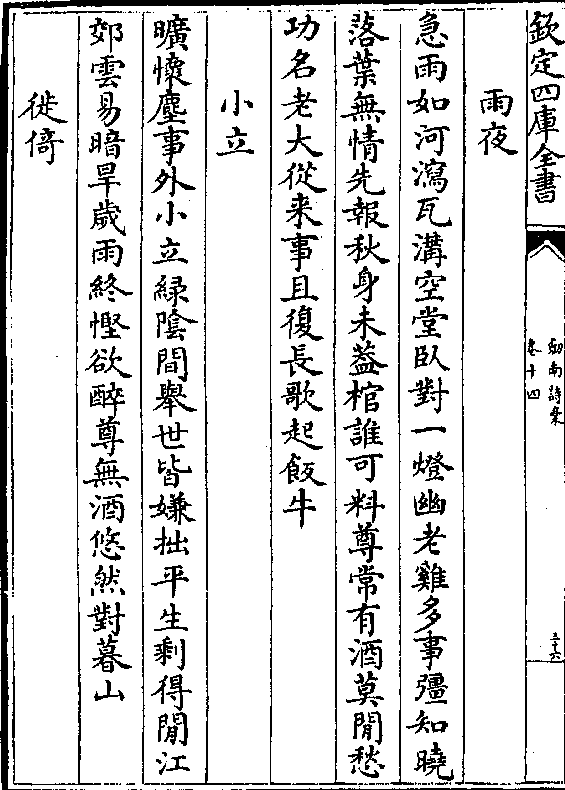 欽定四庫全書
劍南詩稾
卷十四
三十六
雨夜
急雨如河瀉瓦溝空堂臥對一燈幽老雞多事彊知曉
落葉無情先報秋身未葢棺誰可料尊常有酒莫閒愁
功名老大從来事且復長歌起飯牛
小立
曠懷塵事外小立緑陰間舉世皆嫌拙平生剩得閒江
郊雲易暗旱歲雨終慳欲醉尊無酒悠然對暮山
徙倚